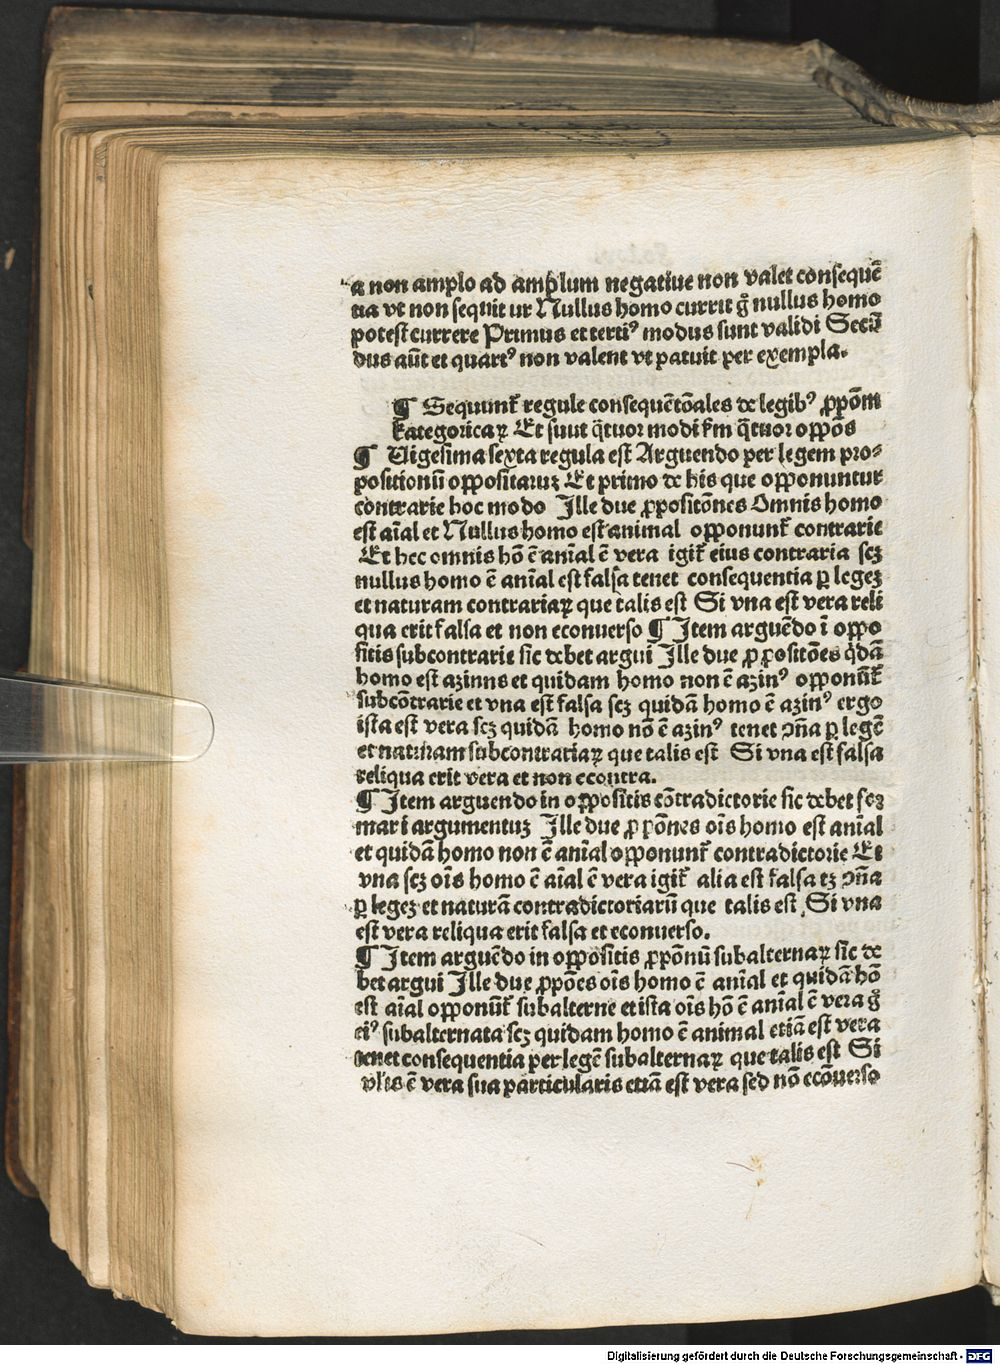 a non amplo ad amplum negatiue non valet consequē
tia vt non sequit ur Nullus homo currit g̊ nullus homo
potest currere Primus et tertiꝰ modus sunt validi Secū
dus aūt et quartꝰ non valent vt patuit per exempla.
¶ Sequunt᷑ regule consequētōales de legibꝰ ꝓpōm
kategoricaꝝ Et suut q̄tuor modi ẜm q̄tuor oꝓpōs
¶ Uigesima sexta regula est Arguendo per legem pro⸗
positionū oppositaruꝫ Et primo de his que opponuntur
contrarie hoc mo do Ille due ꝓpositōnes Omnis homo
est aīal et Nullus homo est animal opponunt᷑ contrarie
Et hec omnis hō ē anīal ē vera igit᷑ eius contraria scꝫ
nullus homo ē anīal est falsa tenet consequentia ꝑ legeꝫ
et naturam contrariaꝝ que talis est Si vna est vera reli
qua erit falsa et non econuerso ¶ Item arguēdo ī oppo
sitis subcontrarie sic debet argui Ille due ꝓ positōes q̄dā
homo est azinns et quidam homo non ē azinꝰ opponūt᷑
subcōtrarie et vna est falsa scꝫ quidā homo ē azinꝰ ergo
ista est vera scꝫ quidā homo nō ē azinꝰ tenet ↄ̄na ꝑ legē
et naturam subcontrariaꝝ que talis est Si vna est falsa
reliqua erit vera et non econtra.
¶ Item arguendo in oppositis cōtradictorie sic debet foꝛ
mar i argumentuꝫ Ille due ꝓ pōnes oīs homo est anīal
et quidā homo non ē anīal opponunt᷑ contradictorie Et
vna scꝫ oīs homo ē aīal ē vera igit᷑ alia est falsa tꝫ ↄ̄na
ꝑ legeꝫ et naturā contradictoriarū que talis est Si vna
est vera reliqua erit falsa et econuerso.
¶ Item arguēdo in oppositis ꝓpōnū subalternaꝝ sic de
bet argui Ille due ꝓpōes oīs homo ē anīal et quidā hō
est aīal opponūt᷑ subalterne et ista oīs hō ē anīal ē vera g̊
eiꝰ subalternata scꝫ quidam homo ē animal etiā est vera
tenet consequentia per legē subalternaꝝ que talis est Si
vlis ē vera sua particularis etiā est vera sed nō ecōuerso
Digitalisierung gefördert durch die Deutsche Forschungsgemeinschaft - DFG